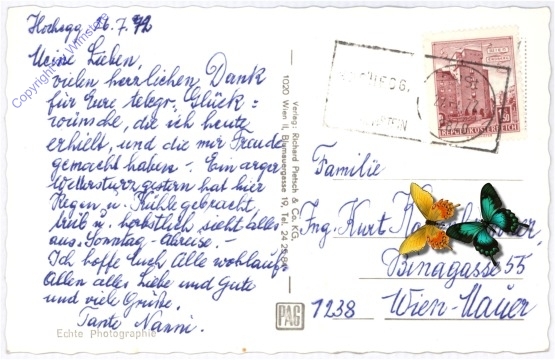 Hochegg 26.7.72
Meine Lieben,
vielen herzlichen Dank
für Eure telegr. Glück=
wünsche, die ich heute
erhielt, und die mir Freude
gemacht haben. – Ein arger
Wettersturz gestern hat hier
Regen u. Kühle gebracht,
trüb u. herbstlich sieht alles
aus. Sonntag Abreise. –
Ich hoffe Euch Alle wohlauf
Allen alles Liebe und Gute
und viele Grüße.
Tante Nanni.
Echte Photographie
Copyright by Winstore
Verlag: Richard Pietsch & Co. KG.
1020 Wien II, Blumauergasse 19, Tel. 24 29 84
PAG
WIEN
REPUBLIK ÖSTERREICH
Familie
Ing. Kurt
Binagasse 55
1238 Wien-Mauer